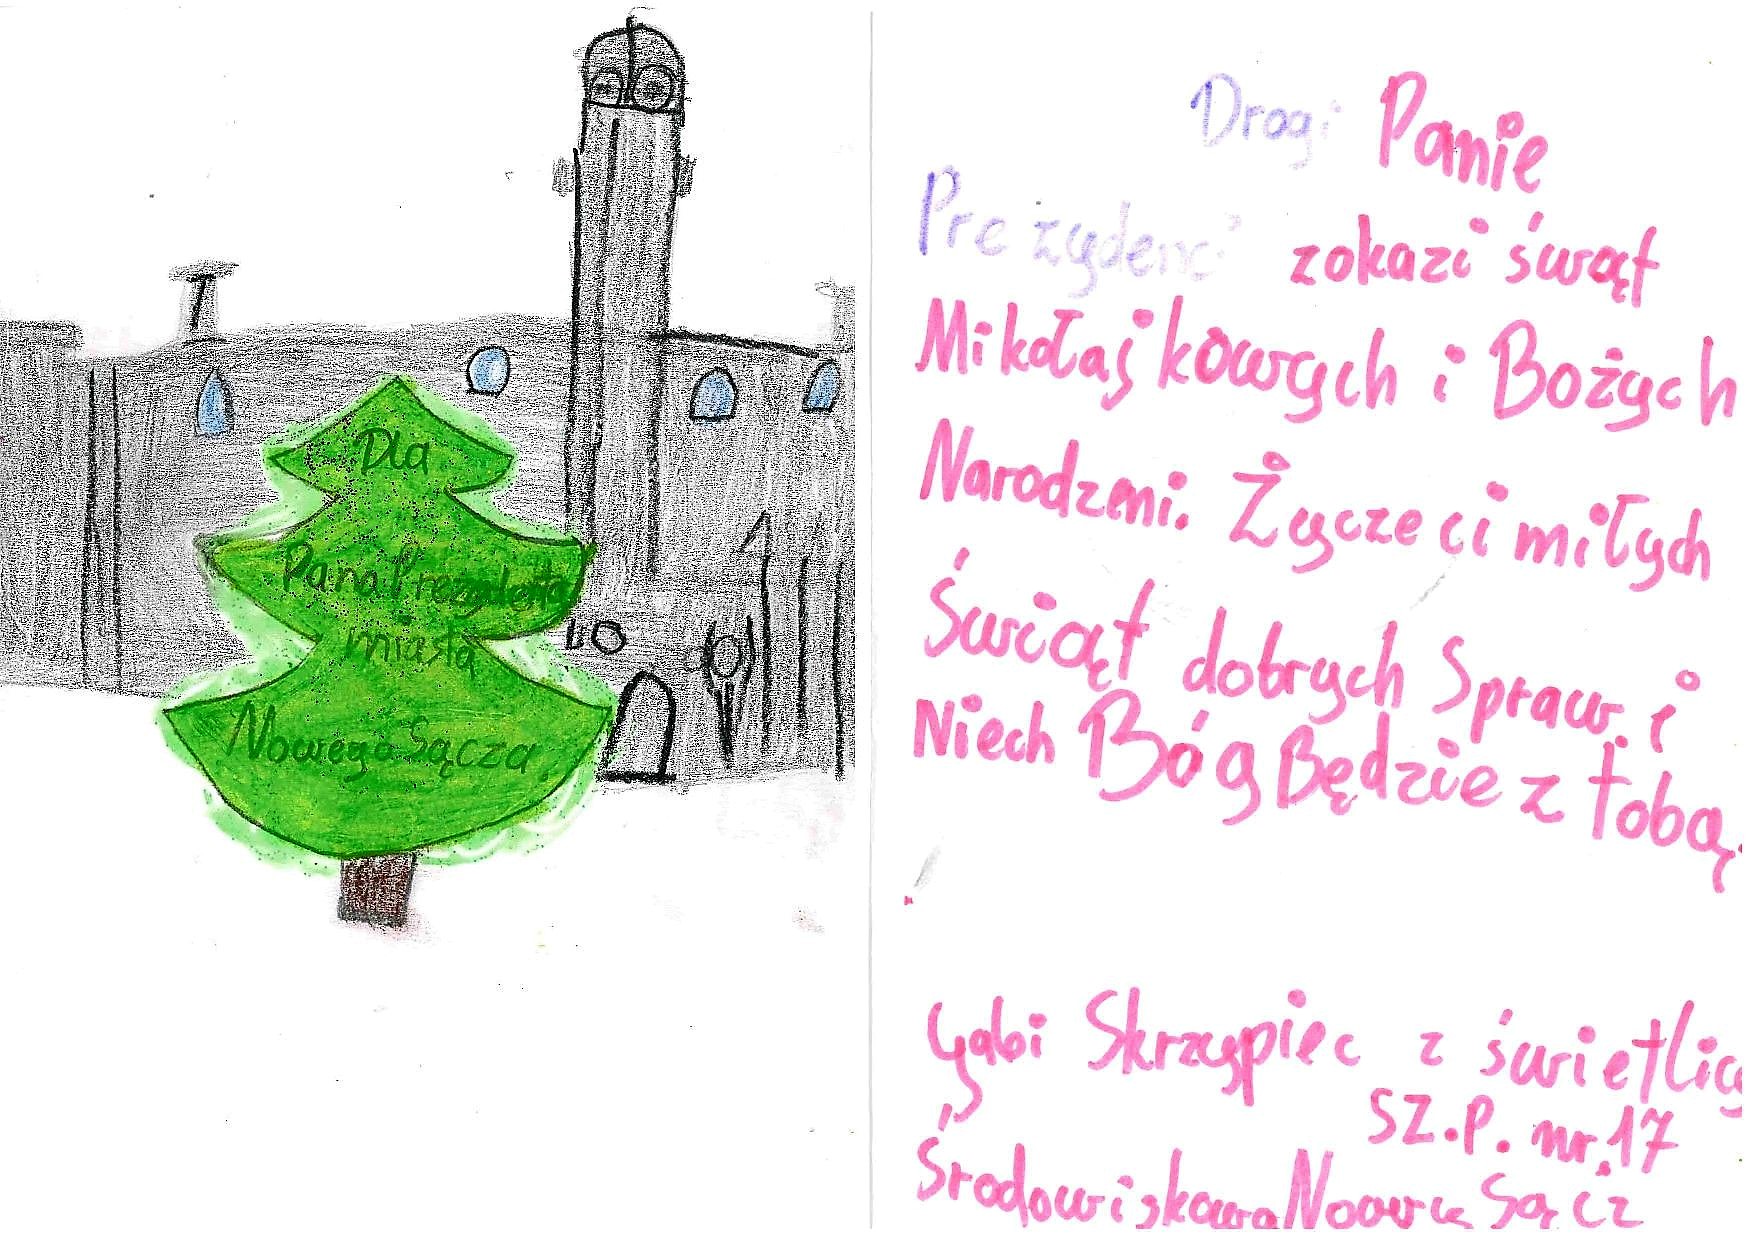 Dla
Pana Prezydenta
miasta
Nowego Sącza
Drogi Panie
Prezydenci zokazi śwąt
Mikołajkowych i Bożych
Narodzeni. Życze ci miłych
Świąt dobrych Spraw i
Niech Bóg Będzie z tobą.
Gabi Skrzypiec z świetlicy
SZ.P. nr.17
Środowiskowa Noowy Sącz